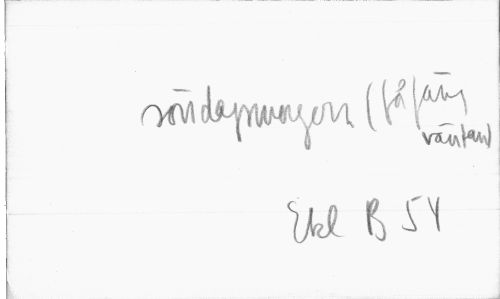 söndagsmorgon (få fäng
väntan)
Ekl B 54